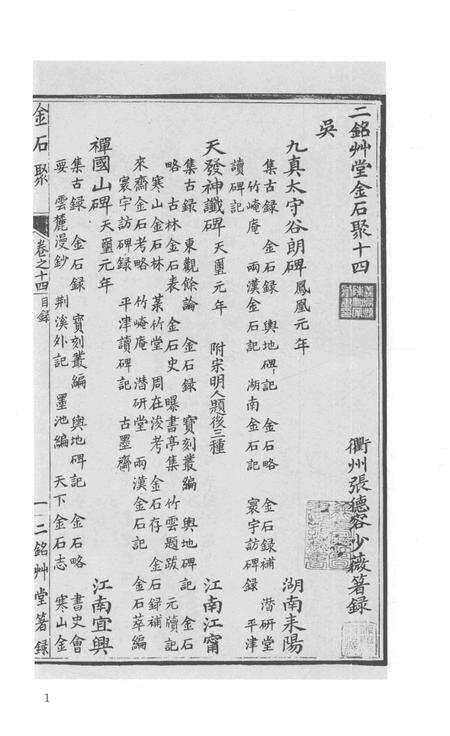 二銘艸堂金石聚十四
衢州張德容少薇箸録
吳
九真太守谷朗碑鳳凰元年 湖南耒陽
集古録 金石録 輿地碑記 金石略 金石録補 潛研堂
竹崦庵 兩漢金石記 湖南金石記 寰宇訪碑録 平津
讀碑記
天發神讖碑天璽元年 附宋明人題後三種 江南江甯
集古録 東觀餘論 金石録 寶刻叢編 輿地碑記 金石
略 古林金石表 金石史 曝書亭集 竹雲題跋 元牘記
寒山金石林 菉竹堂 周在浚考 金石存 金石録補
來齋金石考略 竹崦庵 潛研堂 兩漢金石記 金石萃編
寰宇訪碑録 平津讀碑記 古墨齋
禪國山碑天璽元年 江南宜興
集古録 金石録 寶刻叢編 輿地碑記 金石略 書史會
要 雲麓漫鈔 荆溪外記 墨池編 天下金石志 寒山金
金石聚 卷之十四目録 一 二銘艸堂箸録
1